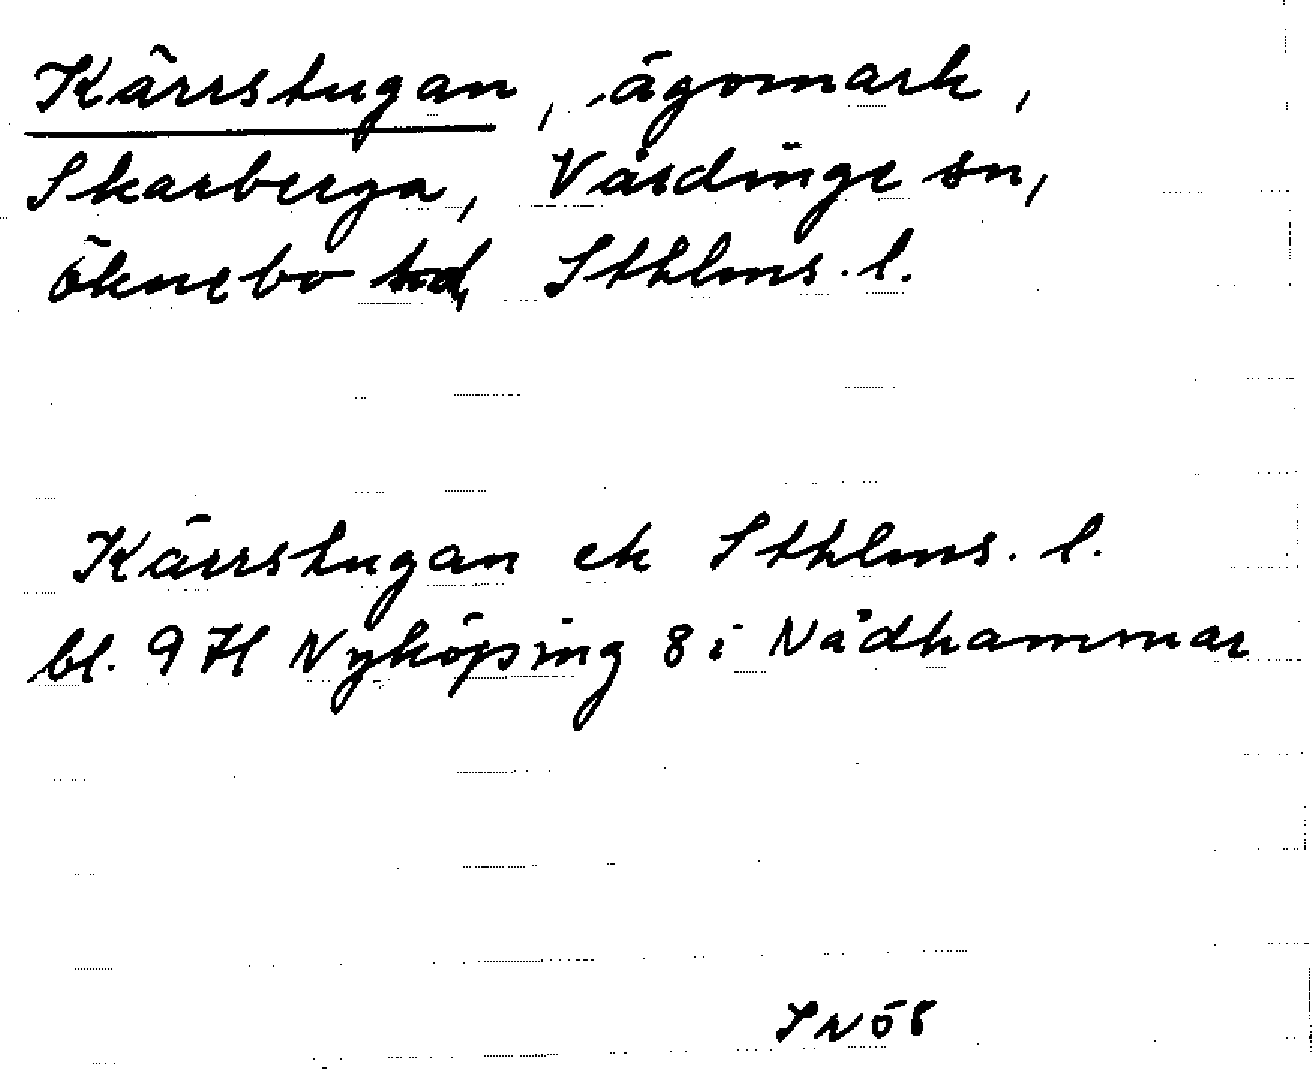 Kärrstugan, ägomark,
Skarberga, Vårdinge sn,
Öknebo hd, Sthlms. l.
Kärrstugan ek Sthlms. l.
bl. 9 H Nyköping 8 i Nådhammar